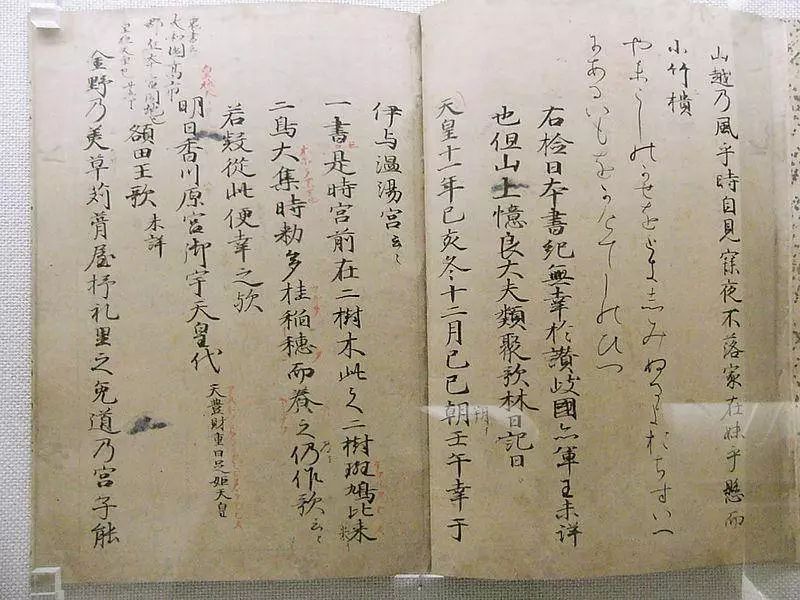 山越乃風乎時自見寐夜不落家在妹乎懸而
小竹樻
やまこしのかせをときしみぬるよおちすいへ
にあるいもをかけてしのひつ
右檢日本書紀無幸於讃岐國亦軍王未詳
也但山上憶良大夫類聚歌林曰記曰
天皇十一年己亥冬十二月己巳朝壬午幸于
伊与温湯宮云々
一書是時宮前在二樹木此之二樹斑鳩比来
二鳥大集時勅多桂稲穂而養之仍作歌云々
若疑從此便幸之歟
明日香川原宮御宇天皇代 天豊財重日足姫天皇
額田王歌 未詳
金野乃美草苅葺屋杼礼里之兎道乃宮子能
裏書云
大和國高市